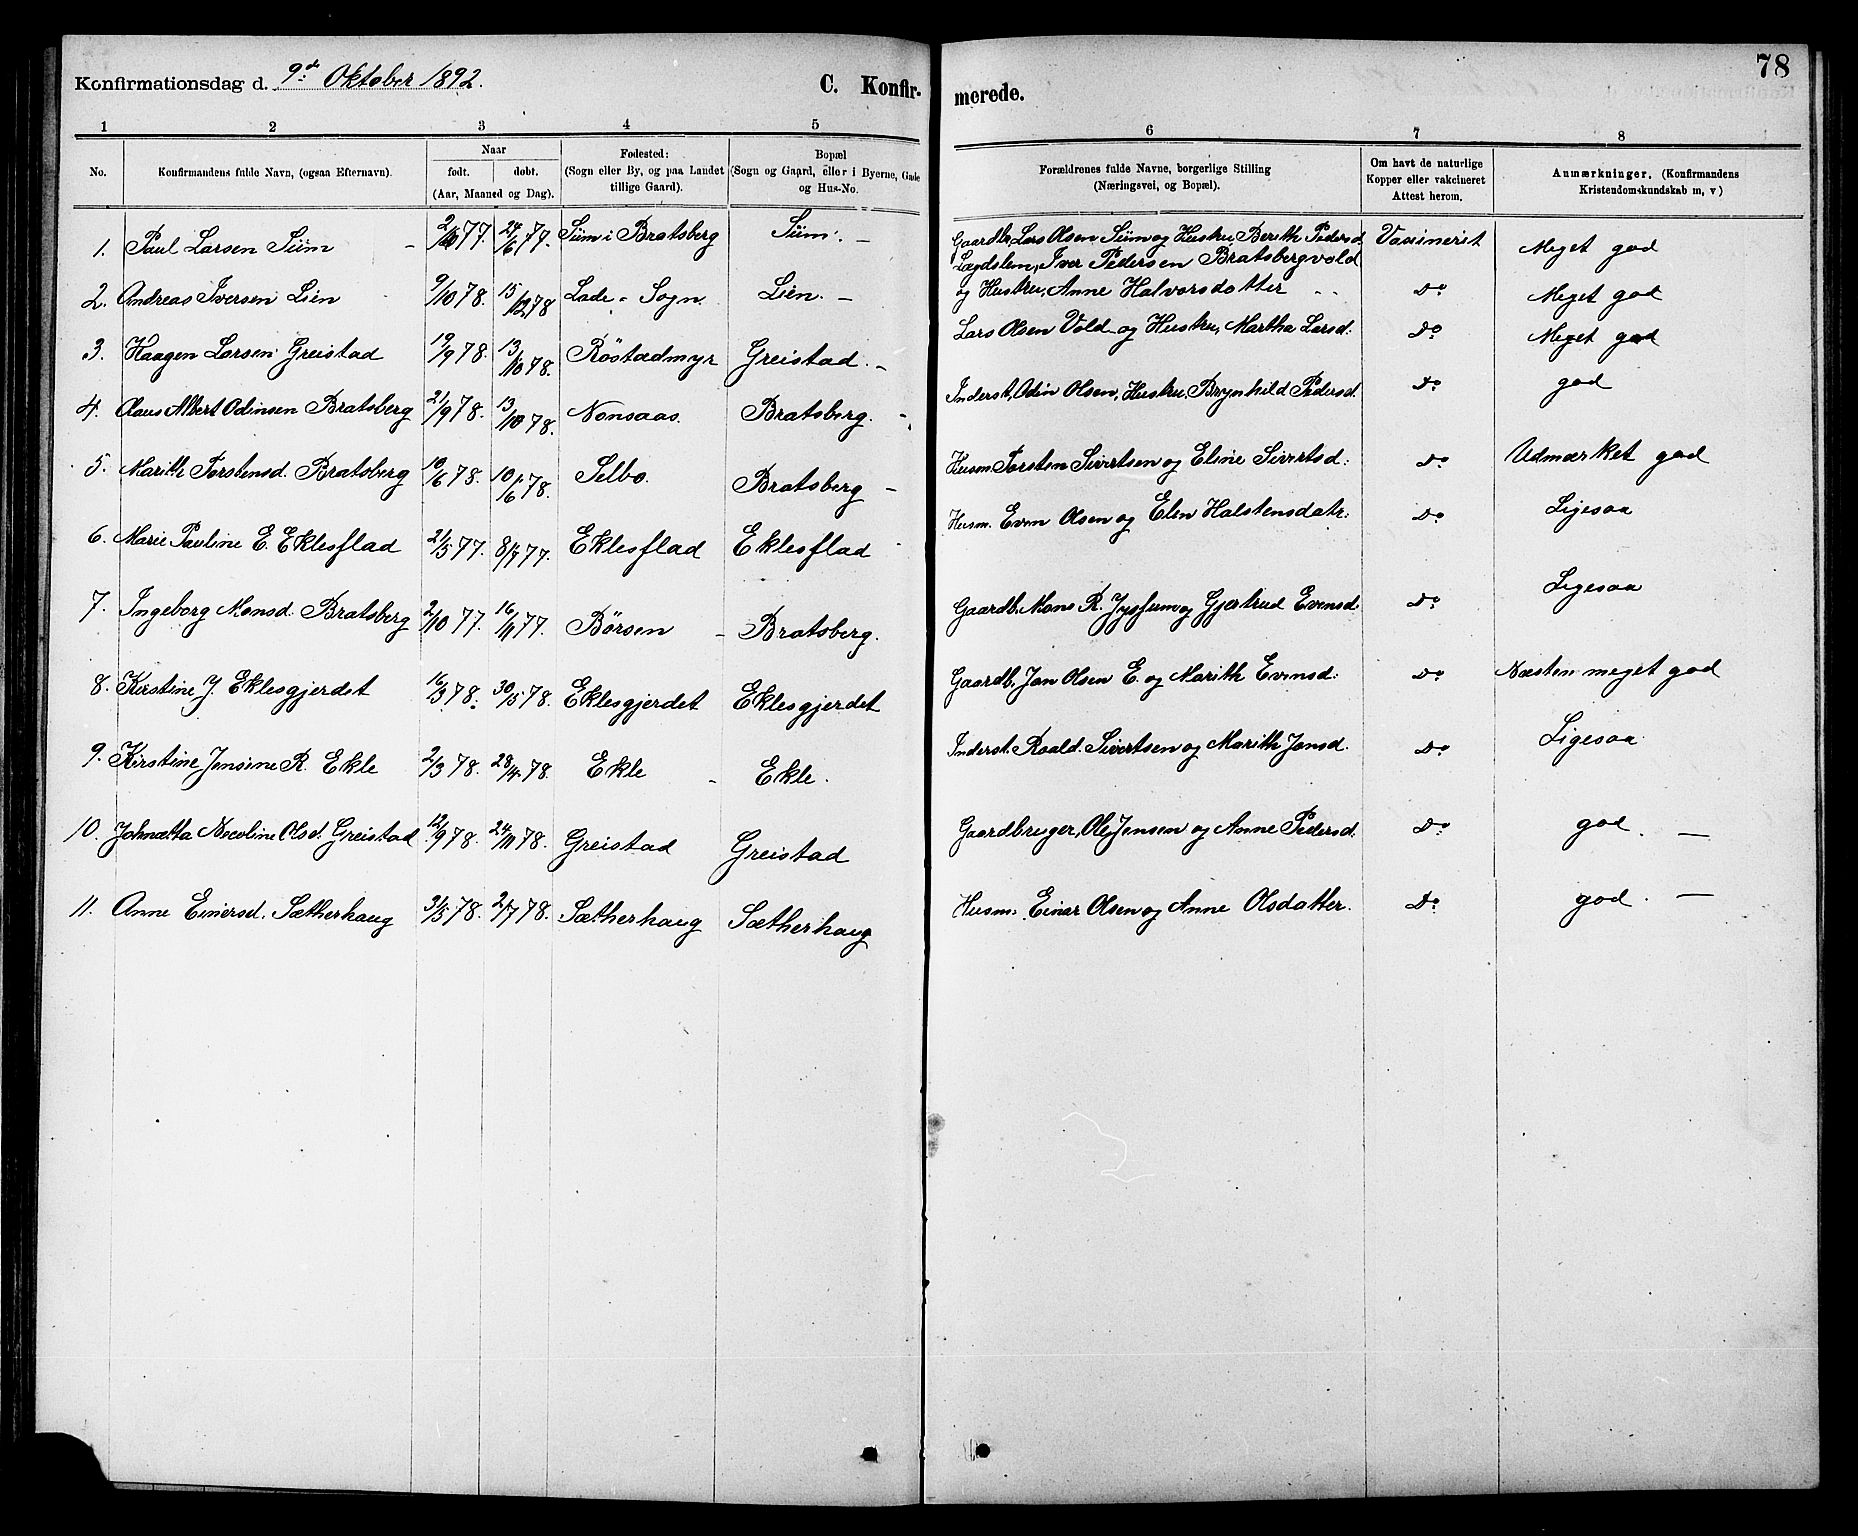 78
Konfirmationsdag d. 9de Oktober 1892.
C. Konfir-
merede.
1 2 3 4 5 6 7 8
No.
Konfirmandens fulde Navn, (ogsaa Efternavn).
Naar
født. døbt.
(Aar, Maaned og Dag).
Fødested:
(Sogn eller By, og paa Landet
tillige Gaard).
Bopæl
(Sogn og Gaard, eller i Byerne, Gade
og Hus-No.
Forældrenes fulde Navne, borgerlige Stilling
(Næringsvei, og Bopæl).
Om havt de naturlige
Kopper eller vakcineret
Attest herom.
Anmærkninger. (Konfirmandens
Kristendomskundskab m, v)
1. Paul Larsen Siim 77. 24/6 77. Siim i Bratsberg Siim. — Gaardbr. Lars Olsen Siim og Hustru Berith Pedersd. Vaccinerit Meget god
2. Andreas Iversen Lien 9/10 78. 15/12 78 Lade - Sogn. Lien. — Lægdslem, Iver Pedersen Bratsbergvold
og Hustru, Anne Halvorsdatter Do Meget god
3. Haagen Larsen Greistad 19/9 78. 13/10 78. Röstadmyr Greistad. - Lars Olsen Vold og Hustru, Martha Larsd. Do Meget god
4. Claus Albert Odinsen Bratsberg 21/9 78. 13/10 78. Nonsaas. Bratsberg. - Inderst, Odin Olsen, Hustru, Brynhild Pedersd. Do god
5. Marith Torstensd. Bratsberg 10/6 78. 10/6 78. Selbo. Bratsberg — Husm. Torsten Sivertsen og Eline Sivertsd. Do Udmærket god
6. Marie Pauline E. Eklesflad 21/5 77. 8/7 77. Eklesflad Eklesflad Husm. Even Olsen og Elen Halstensdatr. Do Ligesaa
7. Ingeborg Monsd. Bratsberg 2/10 77. 16/11 77. Börsen - Bratsberg. Gaardb. Mons R. og Gjertrud Evensd. Do Ligesaa
8. Kirstine J. Eklesgjerdet 16/3 78. 30/5 78. Eklesgjerdet Eklesgjerdet Gaardb. Jon Olsen E. og Marith Evensd. Do Næsten meget god
9. Kirstine Jensine R. Ekle 2/3 78. 28/4 78. Ekle - Ekle. Inderst. Roald. Sivertsen og Marith Jonsd. Do Ligesaa
10. Johnetta Nicoline Olsd. Greistad 12/9 78. 24/11 78. Greistad Greistad Gaardbruger, Ole Jensen og Anne Pedersd. Do god. —
11. Anne Einersd. Sætherhaug 31/5 78. 2/7 78. Sætherhaug Sætherhaug Husm. Einar Olsen og Anne Olsdatter. Do god. —